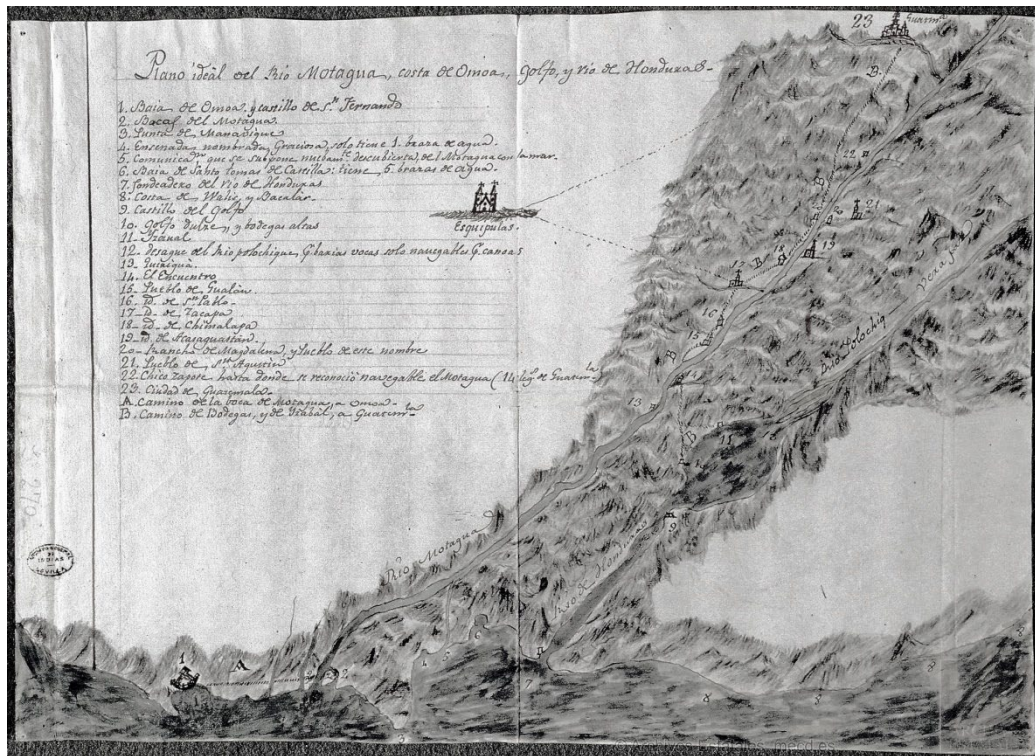 Plano ideal del Rio Motagua, costa de Omoa, Golfo, y rio de Honduras-
1. Baia de Omoa, y castillo de Sn. Fernando
2. Bocas del Motagua
3. Punta de Manavique
4. Ensenada nombrada Graciosa, solo tiene 1. braza de agua.
5. Comunicacn. que se supone nuebamte. descubierta, del Motagua con la mar.
6. Baia de Santo tomas de Castilla: tiene 6. brazas de agua.
7. fondeadero del rio de Honduras
8. Costa de Walis, y Bacalar.
9. Castillo del Golfo
10. Golfo dulze, y bodegas altas
11. Yzaval
12. desague del Rio polochique, bocas solo navegables canoas
13. Quirigua
14. El Encuentro
15. Pueblo de Gualan
16. id. de Sn. Pablo-
17. id. de Zacapa
18. id. de Chimalapa
19. id. de Acasaguastán.
20. Rancho de Magdalena, y Pueblo de este nombre
21. Pueblo de Sn. Agustin
22. Chico zapote, hasta donde se reconoció navegable el Motagua (14 legs. de Guatemla.
23. Ciudad de Guatemala-
A. Camino de la boca de Motagua, a Omoa-
B. Camino de Bodegas, y de Yzabal, a Guatemla.
Esquipulas.
23
B
22
B
20
21
19
18
B
17
16
15
B
14
Rio Polochiq
Vera Paz
13
B
11
10
9
Rio Motagua
Rio de Honduras
1
A
2
4
5
6
7
8
3
ARCHIVO GENERAL
DE
INDIAS
SEVILLA